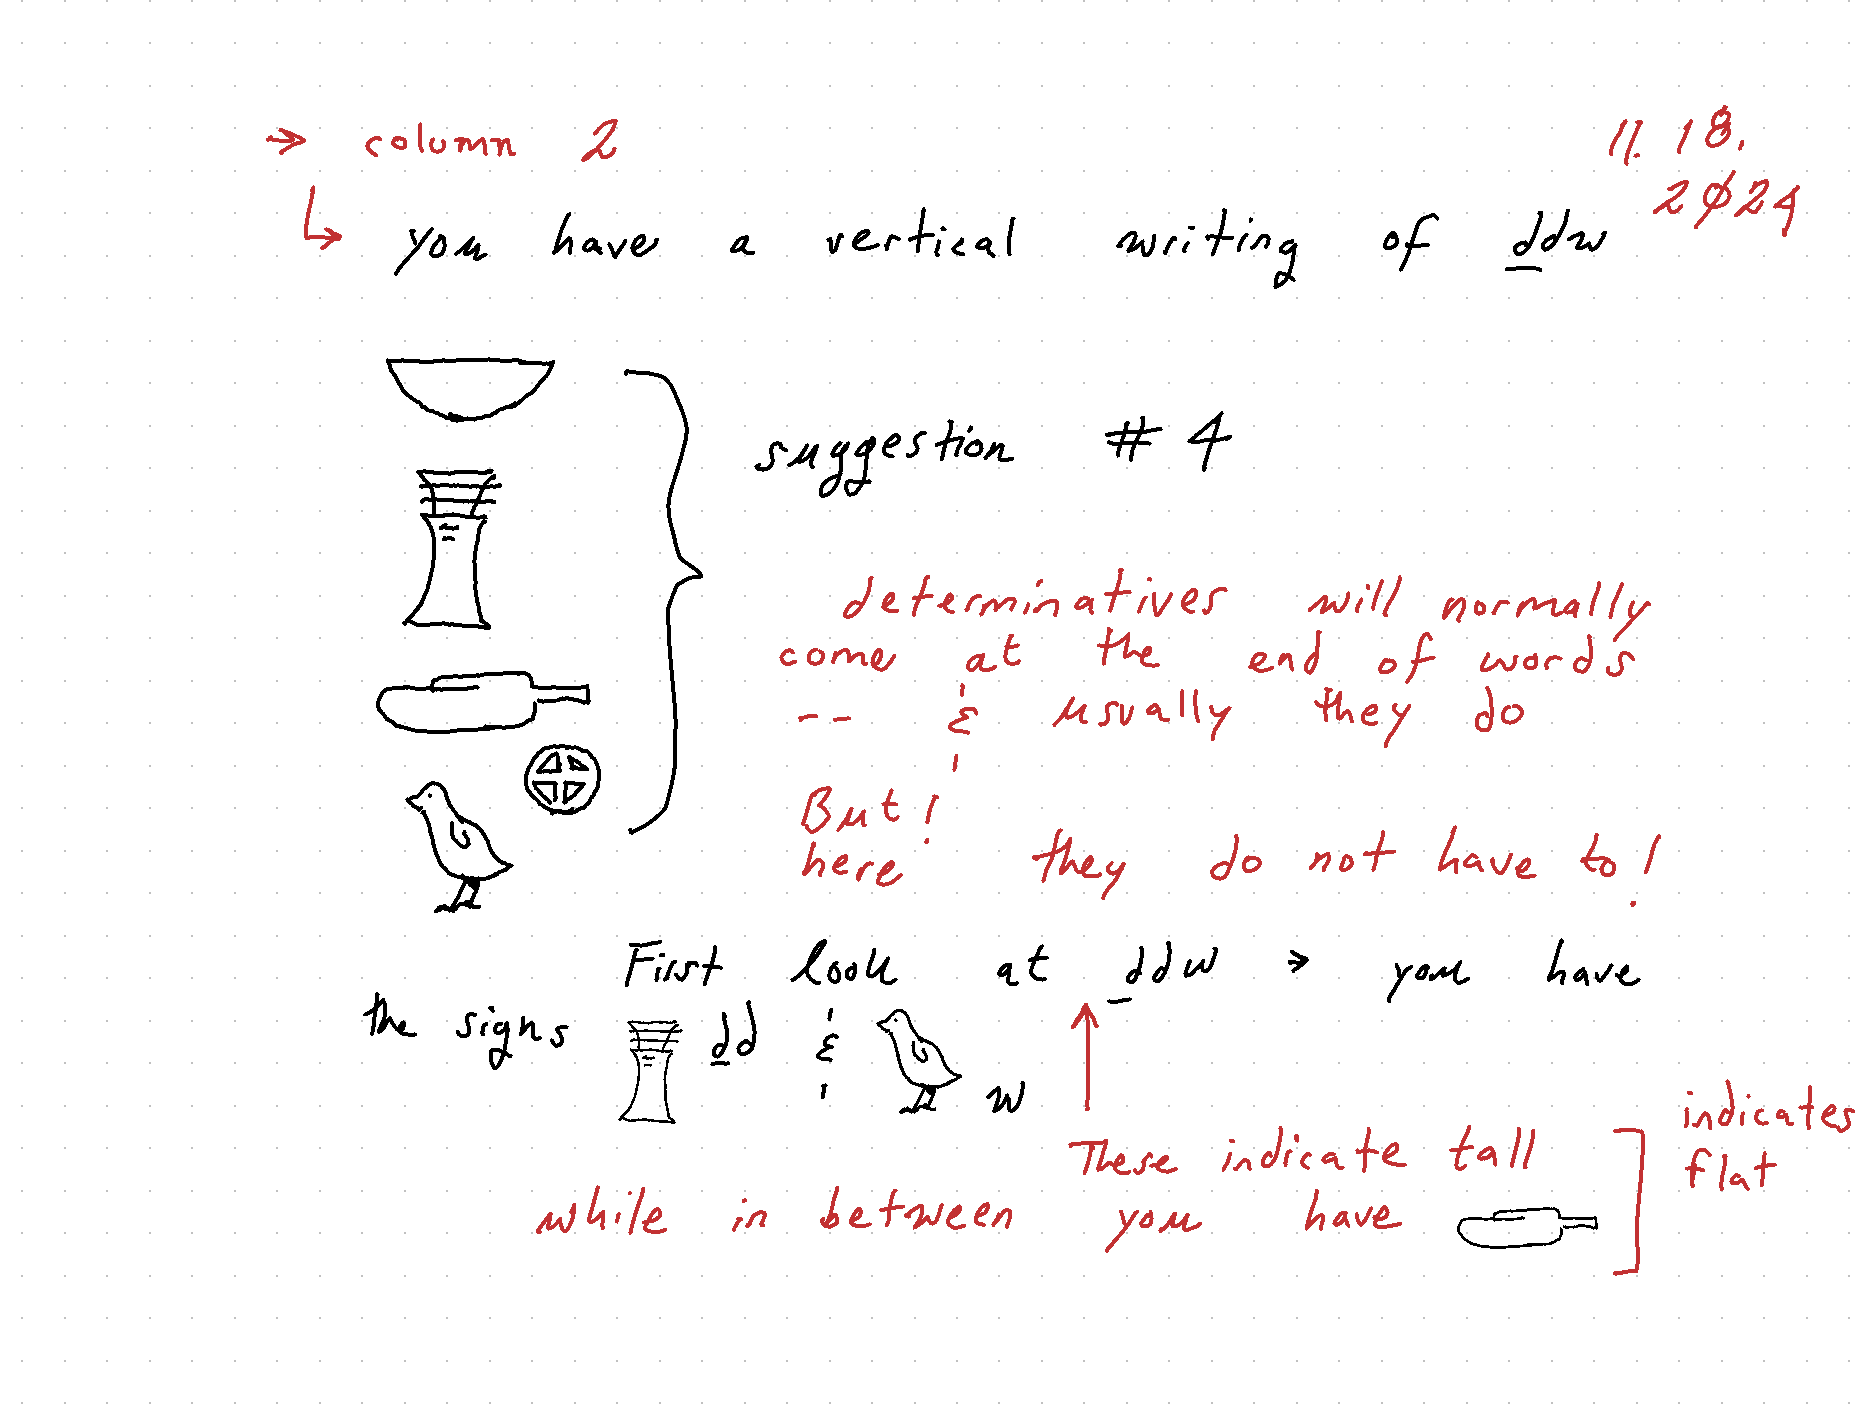 → column 2
11. 18.
2024
↳ you have a vertical writing of ḏdw
suggestion # 4
determinatives will normally
come at the end of words
-- & usually they do
But!
here they do not have to!
First look at ḏdw → you have
the signs ḏd & w
These indicate tall
while in between you have
indicates
flat